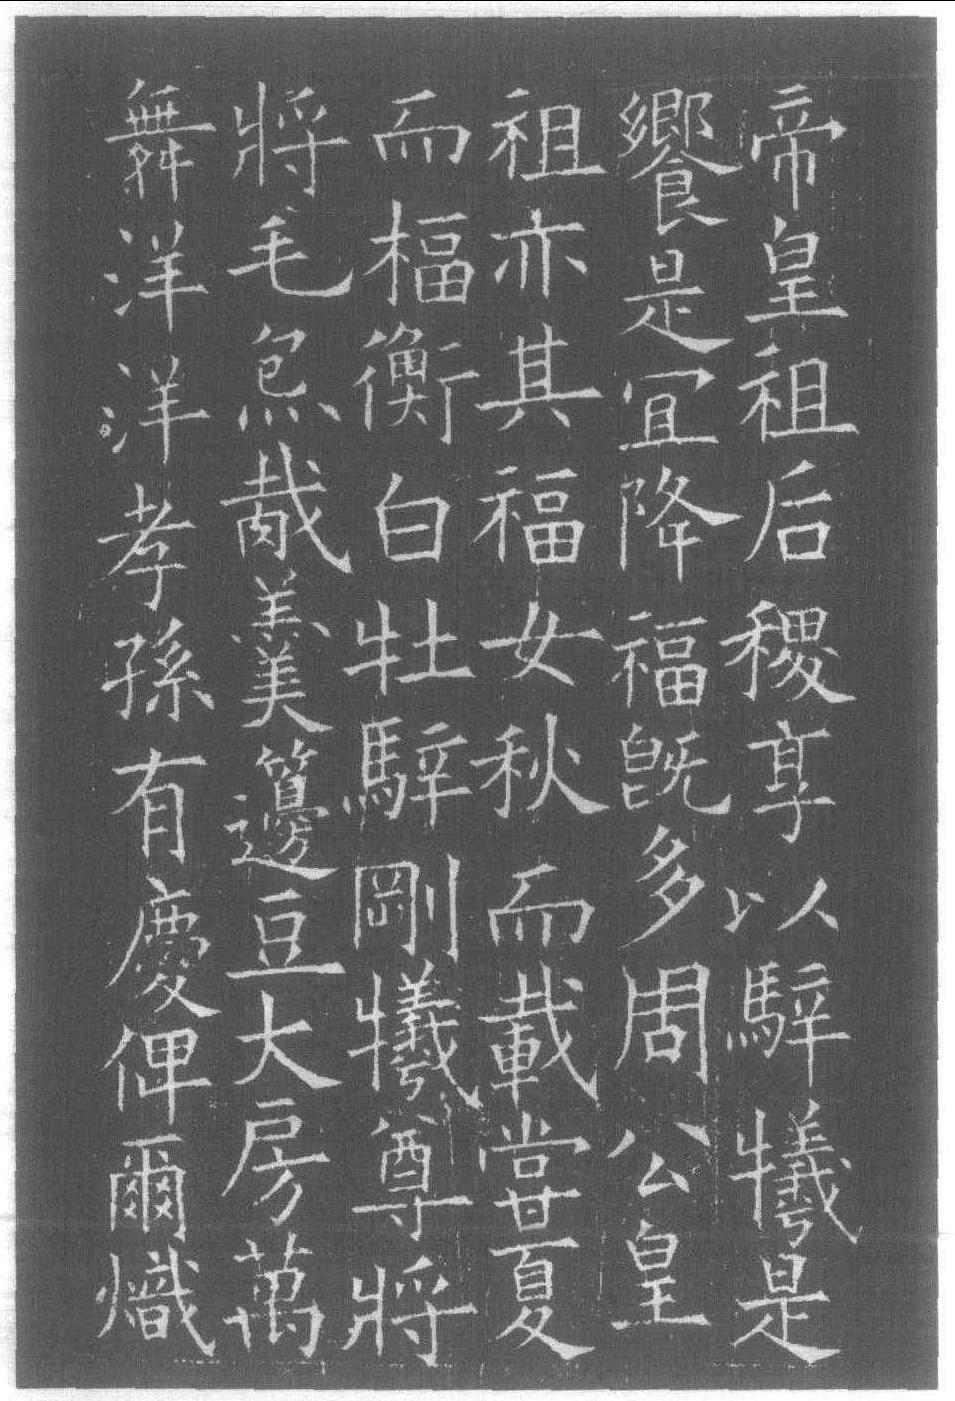 帝皇祖后稷享以騂犧是
饗是冝降福旣多周公皇
祖亦其福女秋而載甞夏
而楅衡白牡騂剛犧尊將
將毛炰胾羹籩豆大房萬
舞洋洋孝孫有慶俾爾熾